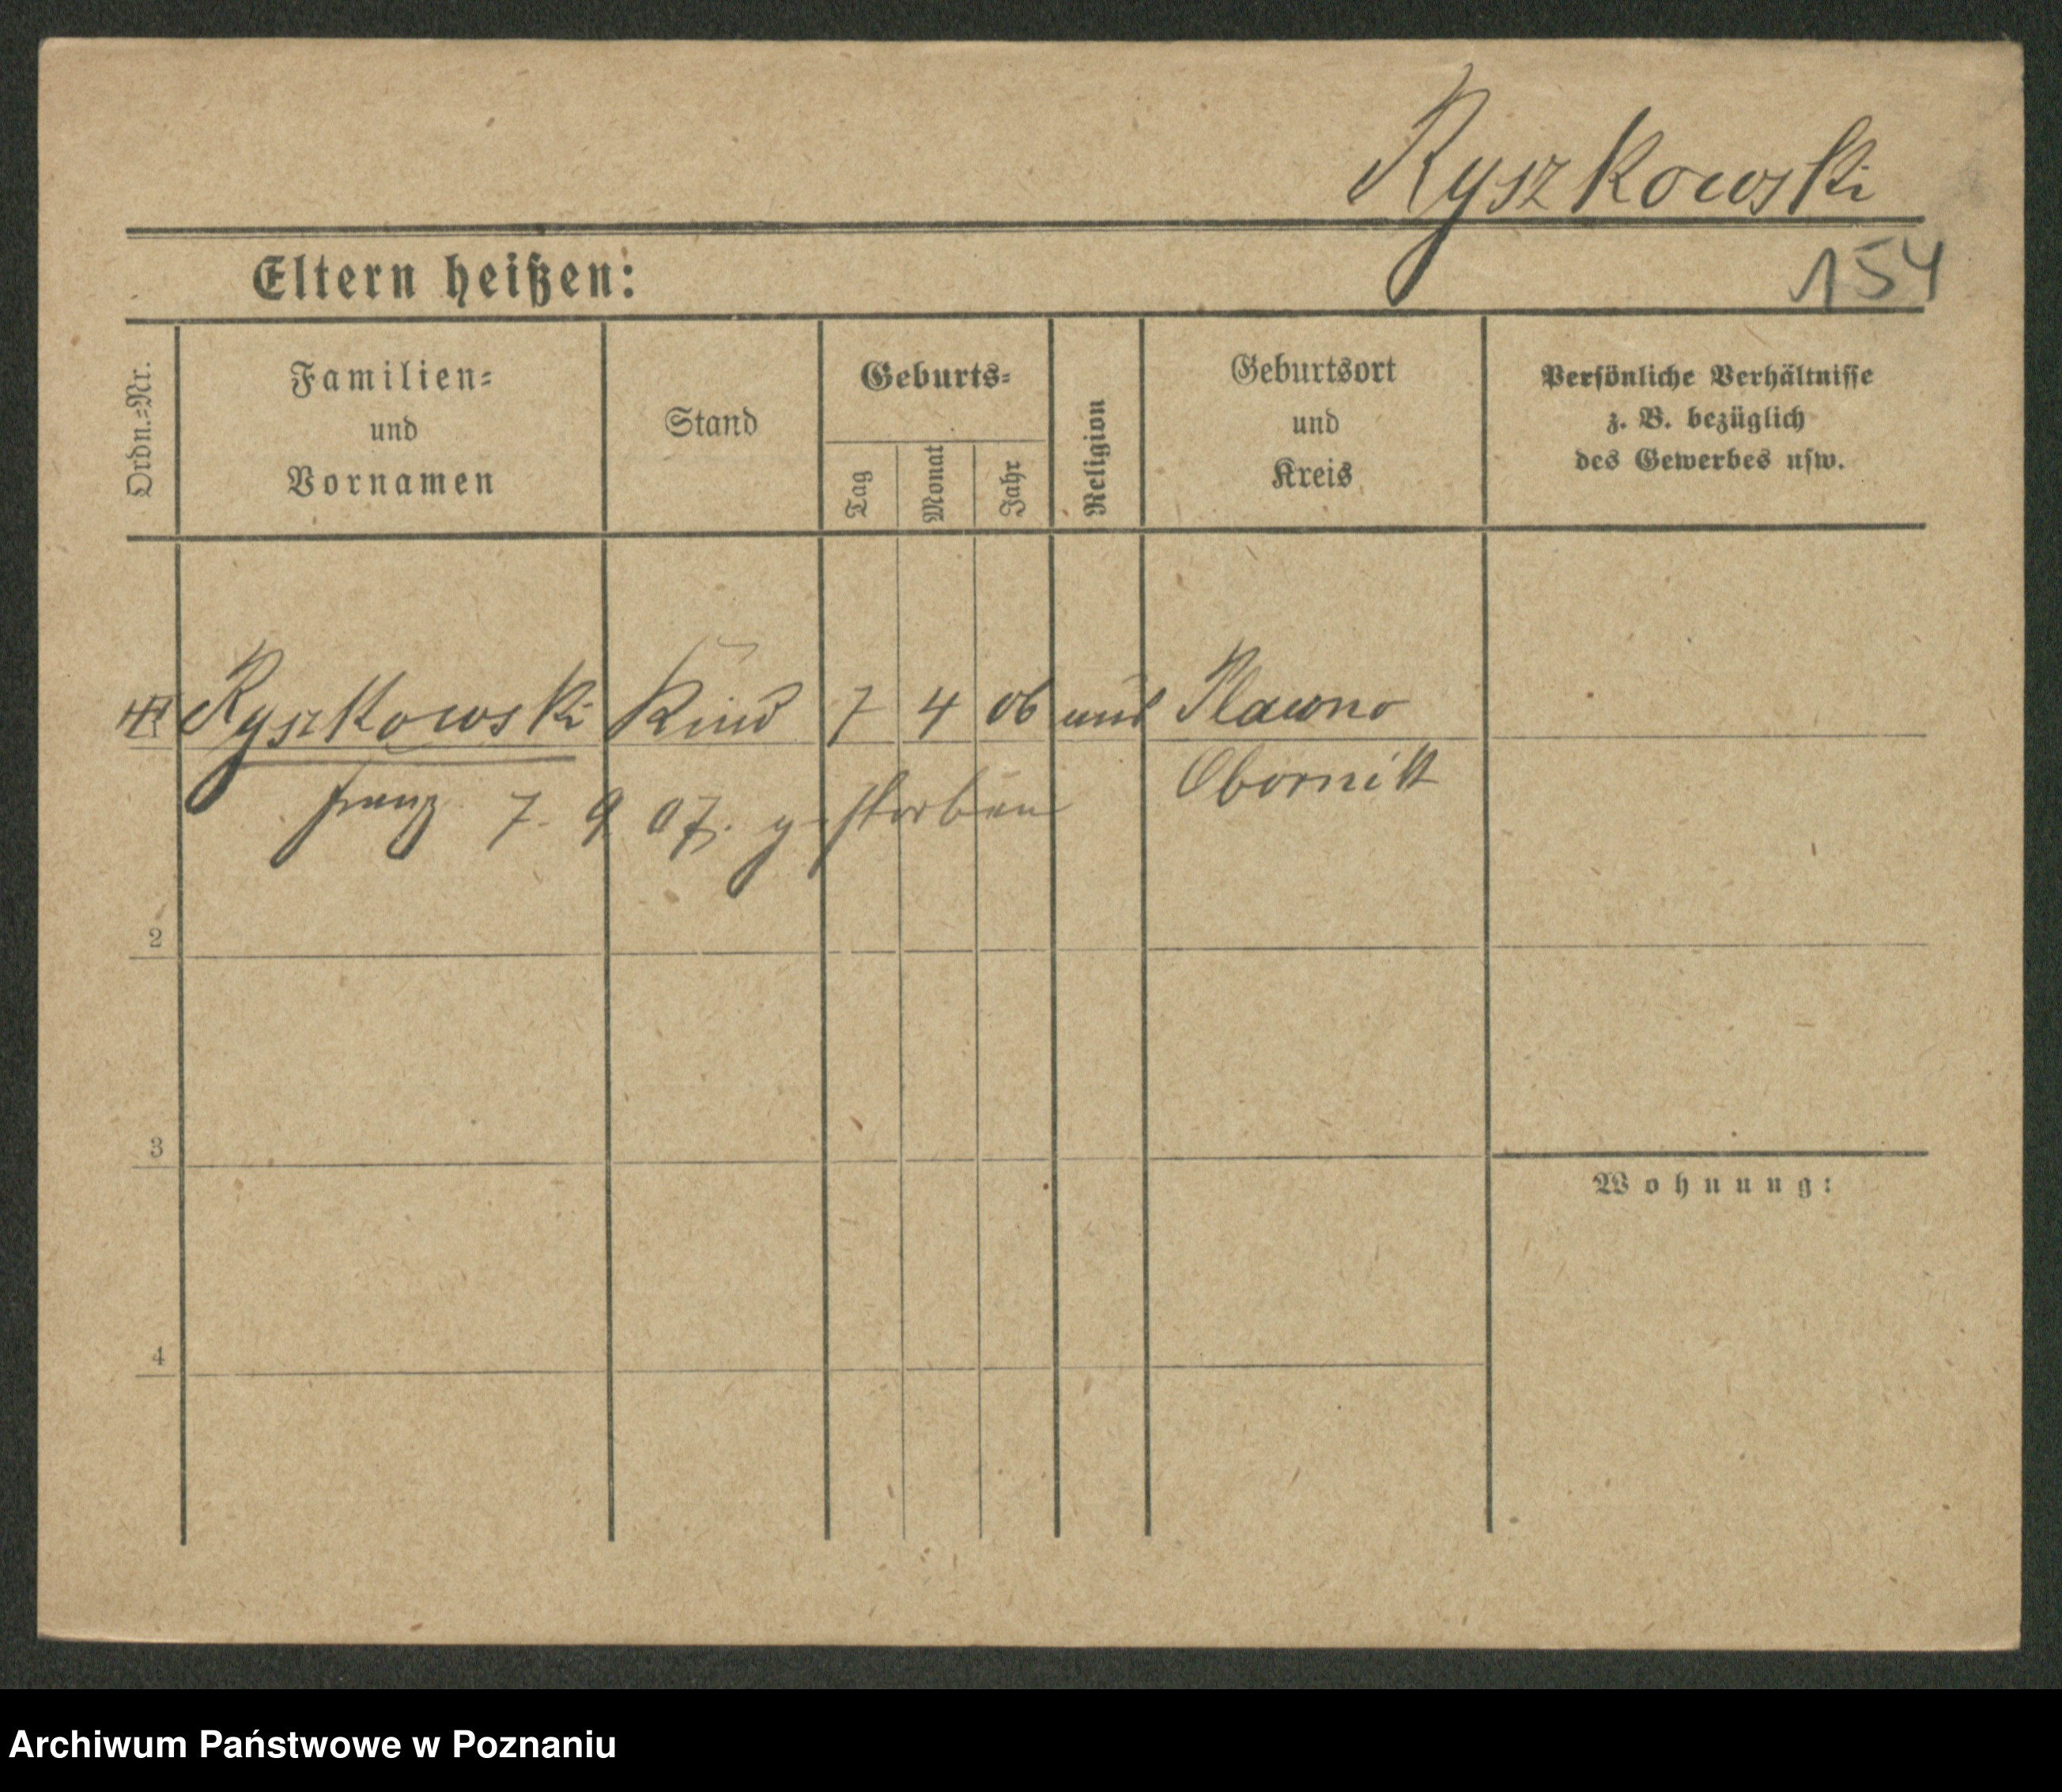 Ryszkowski
Eltern heißen:
154
Ordn.=Nr.
Familien=
und
Vornamen
Stand
Geburts=
Tag
Monat
Jahr
Religion
Geburtsort
und
Kreis
Persönliche Verhältnisse
z. B. bezüglich
des Gewerbes usw.
Ryszkowski Kind 7 4 06 Plawno
Franz 7. 9 07. gestorben
Obornik
2
3
4
Wohnung:
Archiwum Państwowe w Poznaniu